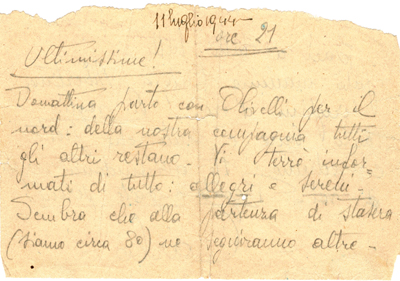 11 luglio 1944
ore 21
Ultimissime!
Domattina parto con Olivelli per il
nord: della nostra compagnia tutti
gli altri restano. Vi terrò infor=
mati di tutto: allegri e sereni=
Sembra che alla partenza di stasera
(siamo circa 80) ne seguiranno altre-